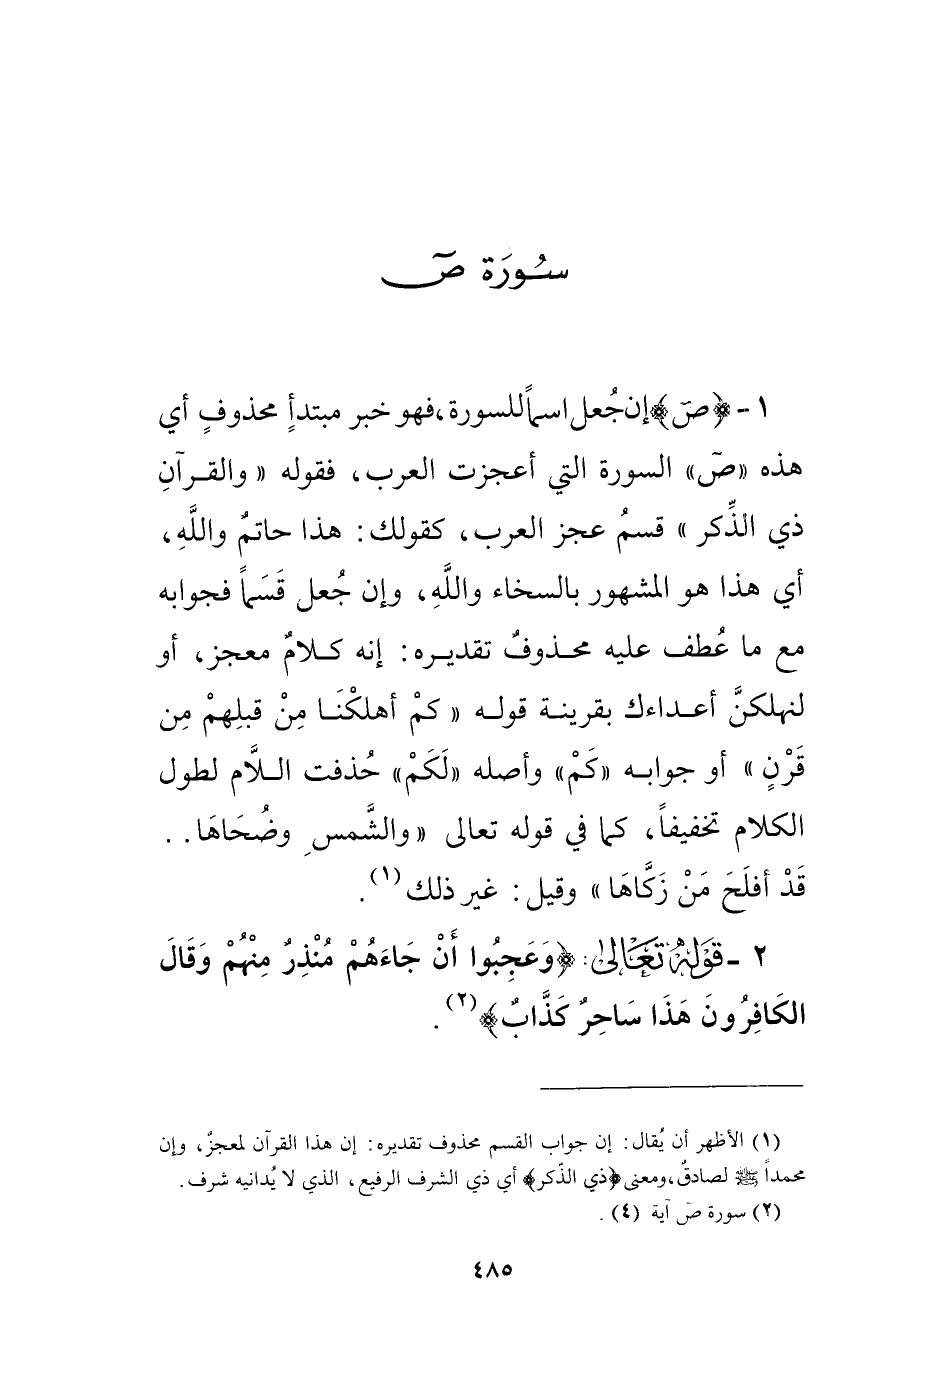 سُورَة صٓ
١ - ﴿صٓ﴾ إن جُعل اسماً للسورة، فهو خبر مبتدأٍ محذوفٍ أي
هذه «صٓ» السورة التي أعجزت العرب، فقوله « والقرآنِ
ذي الذِّكر » قسمُ عجز العرب، كقولك : هذا حاتمٌ واللَّهِ،
أي هذا هو المشهور بالسخاء واللَّهِ، وإن جُعل قَسَماً فجوابه
مع ما عُطف عليه محذوفٌ تقديره : إنه كلامٌ معجز، أو
لنهلكنَّ أعداءك بقرينة قوله « كمْ أهلكْنَا مِنْ قبلِهمْ مِن
قَرْنٍ » أو جوابه «كَمْ» وأصله «لَكَمْ» حُذفت اللَّام لطول
الكلام تخفيفاً، كما في قوله تعالى « والشَّمسِ وضُحَاهَا . .
قَدْ أفلَحَ مَنْ زَكَّاهَا » وقيل : غير ذلك (١) .
٢ - قَوْلُهُ تَعَالَىٰ : ﴿وَعَجِبُوا أَنْ جَاءَهُمْ مُنْذِرٌ مِنْهُمْ وَقَالَ
الكَافِرُونَ هَذَا سَاحِرٌ كَذَّابٌ﴾ (٢) .
(١) الأظهر أن يُقال : إن جواب القسم محذوف تقديره : إن هذا القرآن لمعجزٌ، وإن
محمداً ﷺ لصادقٌ، ومعنى ﴿ذي الذّكر﴾ أي ذي الشرف الرفيع، الذي لا يُدانيه شرف .
(٢) سورة صٓ آية (٤) .
٤٨٥